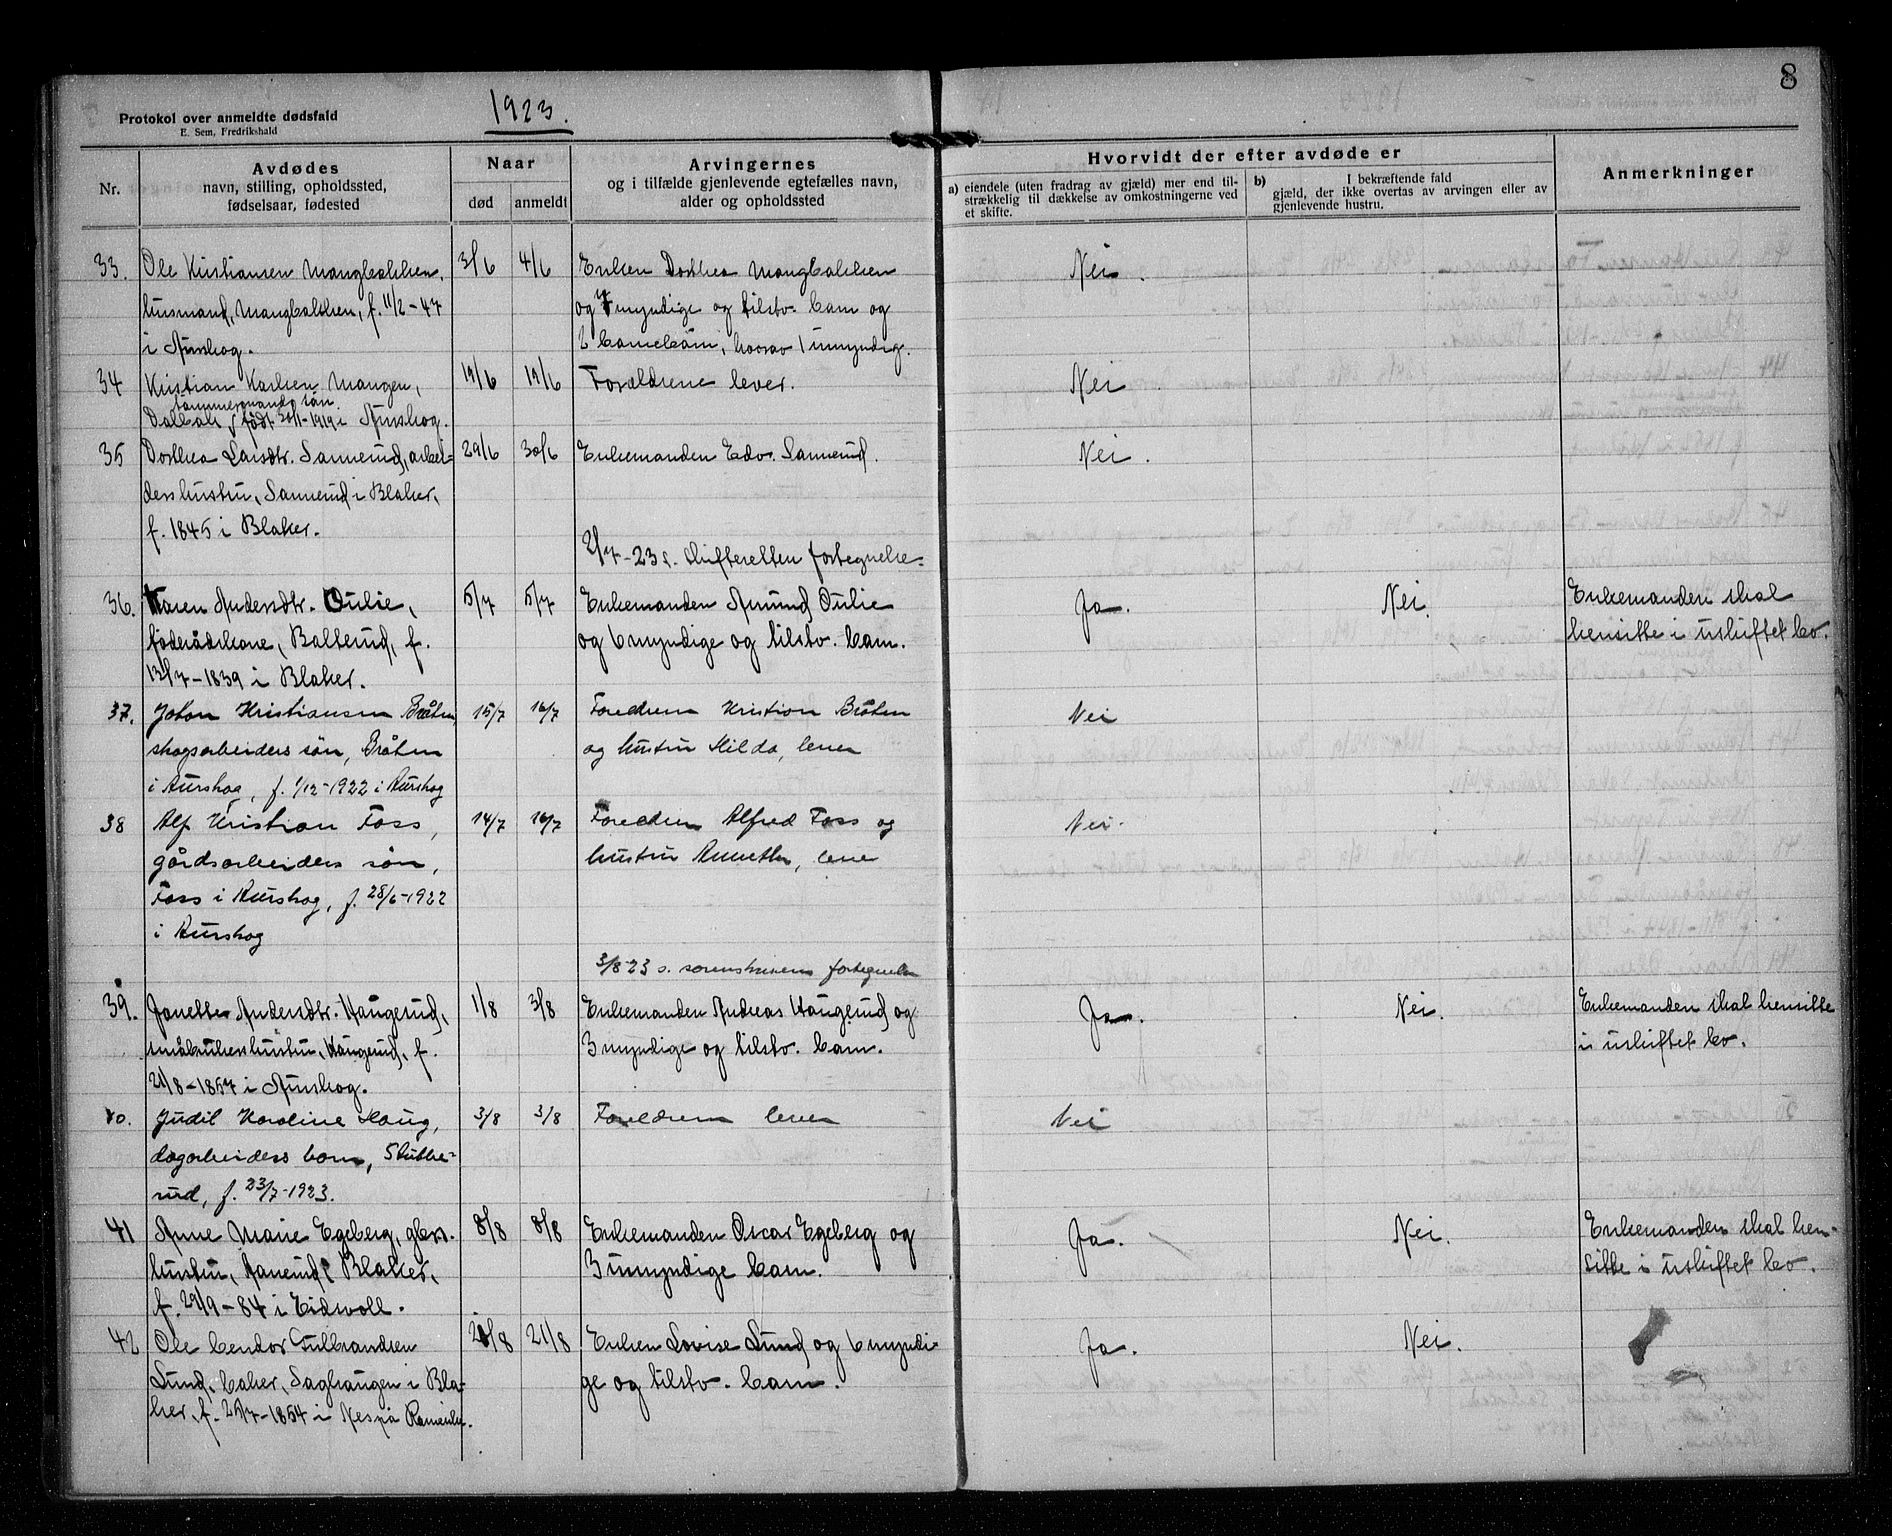 8
Protokol over anmeldte dødsfald
E. Sem, Fredrikshald
1923.
Nr.
Avdødes
navn, stilling, opholdssted,
fødselsaar, fødested
Naar
død
anmeldt
Arvingernes
og i tilfælde gjenlevende egtefælles navn,
alder og opholdssted
Hvorvidt der efter avdøde er
a) eiendele (uten fradrag av gjæld) mer end til-
strækkelig til dækkelse av omkostningerne ved
et skifte.
b) I bekræftende fald
gjæld, der ikke overtas av arvingen eller av
gjenlevende hustru.
Anmerkninger
33. Ole Kristiansen Mangbakken, 3/6 4/6 Enken Dorthea Mangbakken Nei.
husmand, Mangbakken, f. 11/2-47 og 7 myndige og tilstv. barn og
i Aurskog. 2 barnebarn, hvorav 1 umyndig.
34 Kristian Karlsen Mangen, 19/6 19/6 Forældrene lever. Nei
tømmermands søn
Dalbak, født 30/1-1919 i Aurskog.
35 Dorthea Larsdtr. Sannerud, arbei- 29/6 30/6 Enkemanden Edv. Sannerud. Nei.
derhustru, Sannerud i Blaker,
f. 1845 i Blaker.
2/7-23 s. skifteretten fortegnelse.
36. Karen Andersdtr. Oulie, 5/7 5/7 Enkemanden Amund Oulie Ja. Nei. Enkemanden skal
føderådskone, Balterud, f. og 6 myndige og tilstv. barn. hensitte i uskiftet bo.
13/7-1839 i Blaker.
37. Johan Kristiansen Bråten, 15/7 16/7 Foreldrene Kristian Bråten Nei
skogsarbeiders søn, Bråten og hustru Hilda, lever
i Aurskog, f. 1/12-1922 i Aurskog
38 Alf Kristian Foss, 14/7 16/7 Foreldrene Alfred Foss og Nei.
gårdsarbeiders søn, hustru Annethe, lever
Foss i Aurskog, f. 28/6-1922
i Aurskog
3/8-23 s. sorenskriveren fortegnelse
39. Janette Andersdtr. Haugerud, 1/8 3/8 Enkemanden Andreas Haugerud og Ja. Nei. Enkemanden skal hensitte
småbrukerhustru, Haugerud, f. 3 myndige og tilstv. barn. i uskiftet bo.
21/8-1857 i Aurskog.
40. Judit Karoline Haug, 3/8 3/8 Foreldrene lever Nei
dagarbeiders barn, Stubbe-
rud, f. 23/7-1923.
41 Anne Marie Egeberg, gbr. 8/8 8/8 Enkemanden Oscar Egeberg og Ja. Nei. Enkemanden skal hen-
hustru, i Blaker, 3 umyndige barn. sitte i uskiftet bo.
f. 29/9-84 i Eidsvoll.
42 Ole Gulbrandsen 20/8 21/8 Enken Lovise Lund og 6 myndi- Ja. Nei.
Lund, baker, Saghaugen i Bla- ge og tilstv. barn.
ker, f. 25/7-1854 i Nes på Romerike.